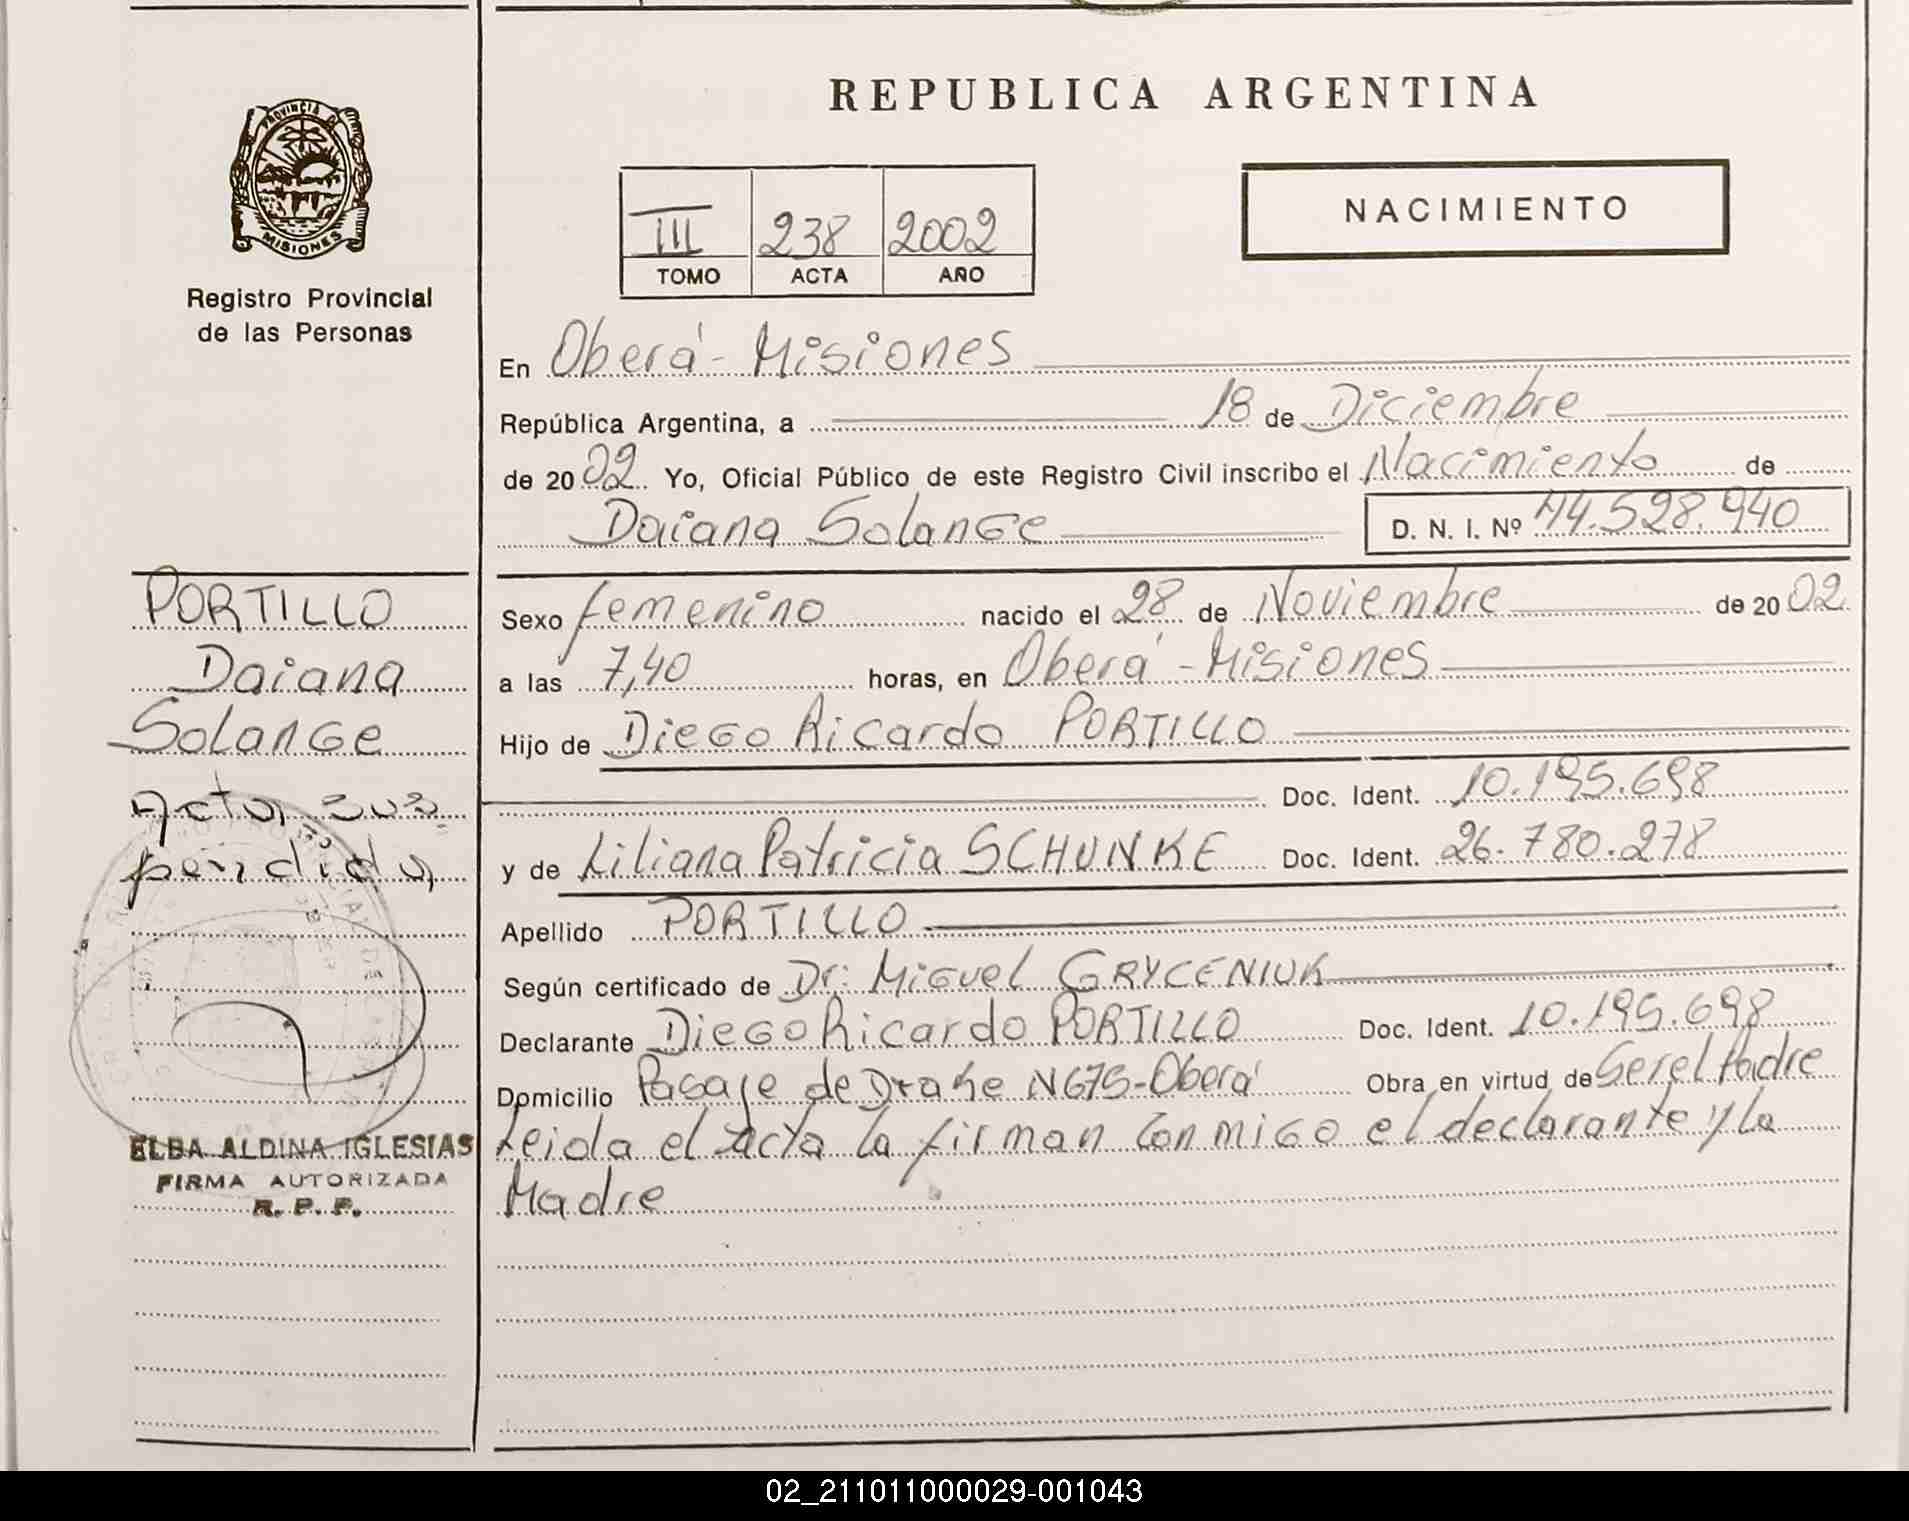 PROVINCIA D
MISIONES
Registro Provincial
de las Personas
REPUBLICA ARGENTINA
III 238 2002
TOMO ACTA AÑO
NACIMIENTO
En Oberá - Misiones
República Argentina, a 18 de Diciembre
de 2002 Yo, Oficial Público de este Registro Civil inscribo el Nacimiento de
Daiana Solange D. N. I. Nº 44.528.940
PORTILLO
Daiana
Solange
Acta sus
pendida
ELBA ALDINA IGLESIAS
FIRMA AUTORIZADA
R. P. P.
Sexo femenino nacido el 28 de Noviembre de 2002
a las 7,40 horas, en Oberá - Misiones
Hijo de Diego Ricardo PORTILLO
Doc. Ident. 10.195.698
y de Liliana Patricia SCHUNKE Doc. Ident. 26.780.278
Apellido PORTILLO
Según certificado de Dr: Miguel GRYCENIUK
Declarante Diego Ricardo PORTILLO Doc. Ident. 10.195.698
Domicilio Pasaje de Drake N675-Oberá Obra en virtud de Ser el Padre
Leida el acta la firman conmigo el declarante y la
Madre
02_211011000029-001043